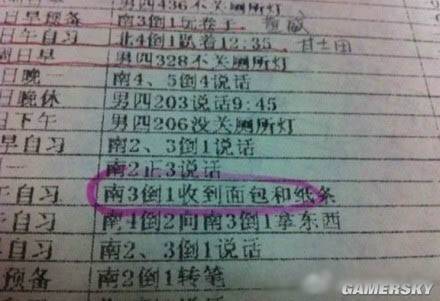 男四436不关厕所灯
日早预备 南3倒1玩卷子
日午自习 北4倒1趴着12:35
周日早 男四328不关厕所灯
日晚一 南4、5倒4说话
日晚休 男四203说话9:45
日下午 男四206没关厕所灯
早自习 南2、3倒1说话
一 南2正3说话
午自习 南3倒1收到面包和纸条
自习 南4倒2向南3倒1拿东西
自习 南2、3倒1说话
预备 南2倒1转笔
GAMERSKY